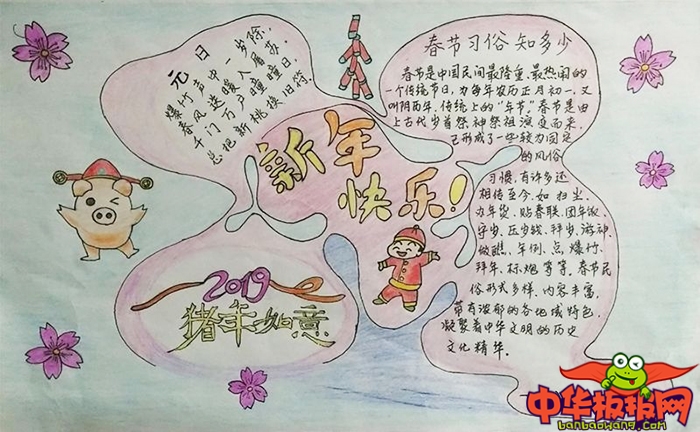 元日
爆竹声中一岁除,
春风送暖入屠苏.
千门万户曈曈日,
总把新桃换旧符.
春节习俗知多少
春节是中国民间最隆重、最热闹的
一个传统节日,为每年农历正月初一,又
叫阴历年,传统上的"年节"。春节是由
上古代岁首祭神祭祖演变而来,
已形成了一些较为固定
的风俗
习惯,有许多还
相传至今,如扫尘、
办年货、贴春联、团年饭、
守岁、压岁钱、拜岁、游神、
做醮、年例、点爆竹、
拜年、烟等等。春节民
俗形式多样、内容丰富,
带有浓郁的各地域特色,
凝聚着中华文明的历史
文化精华.
新年
快乐!
2019
猪年如意
中华板报网
banbaowang.com